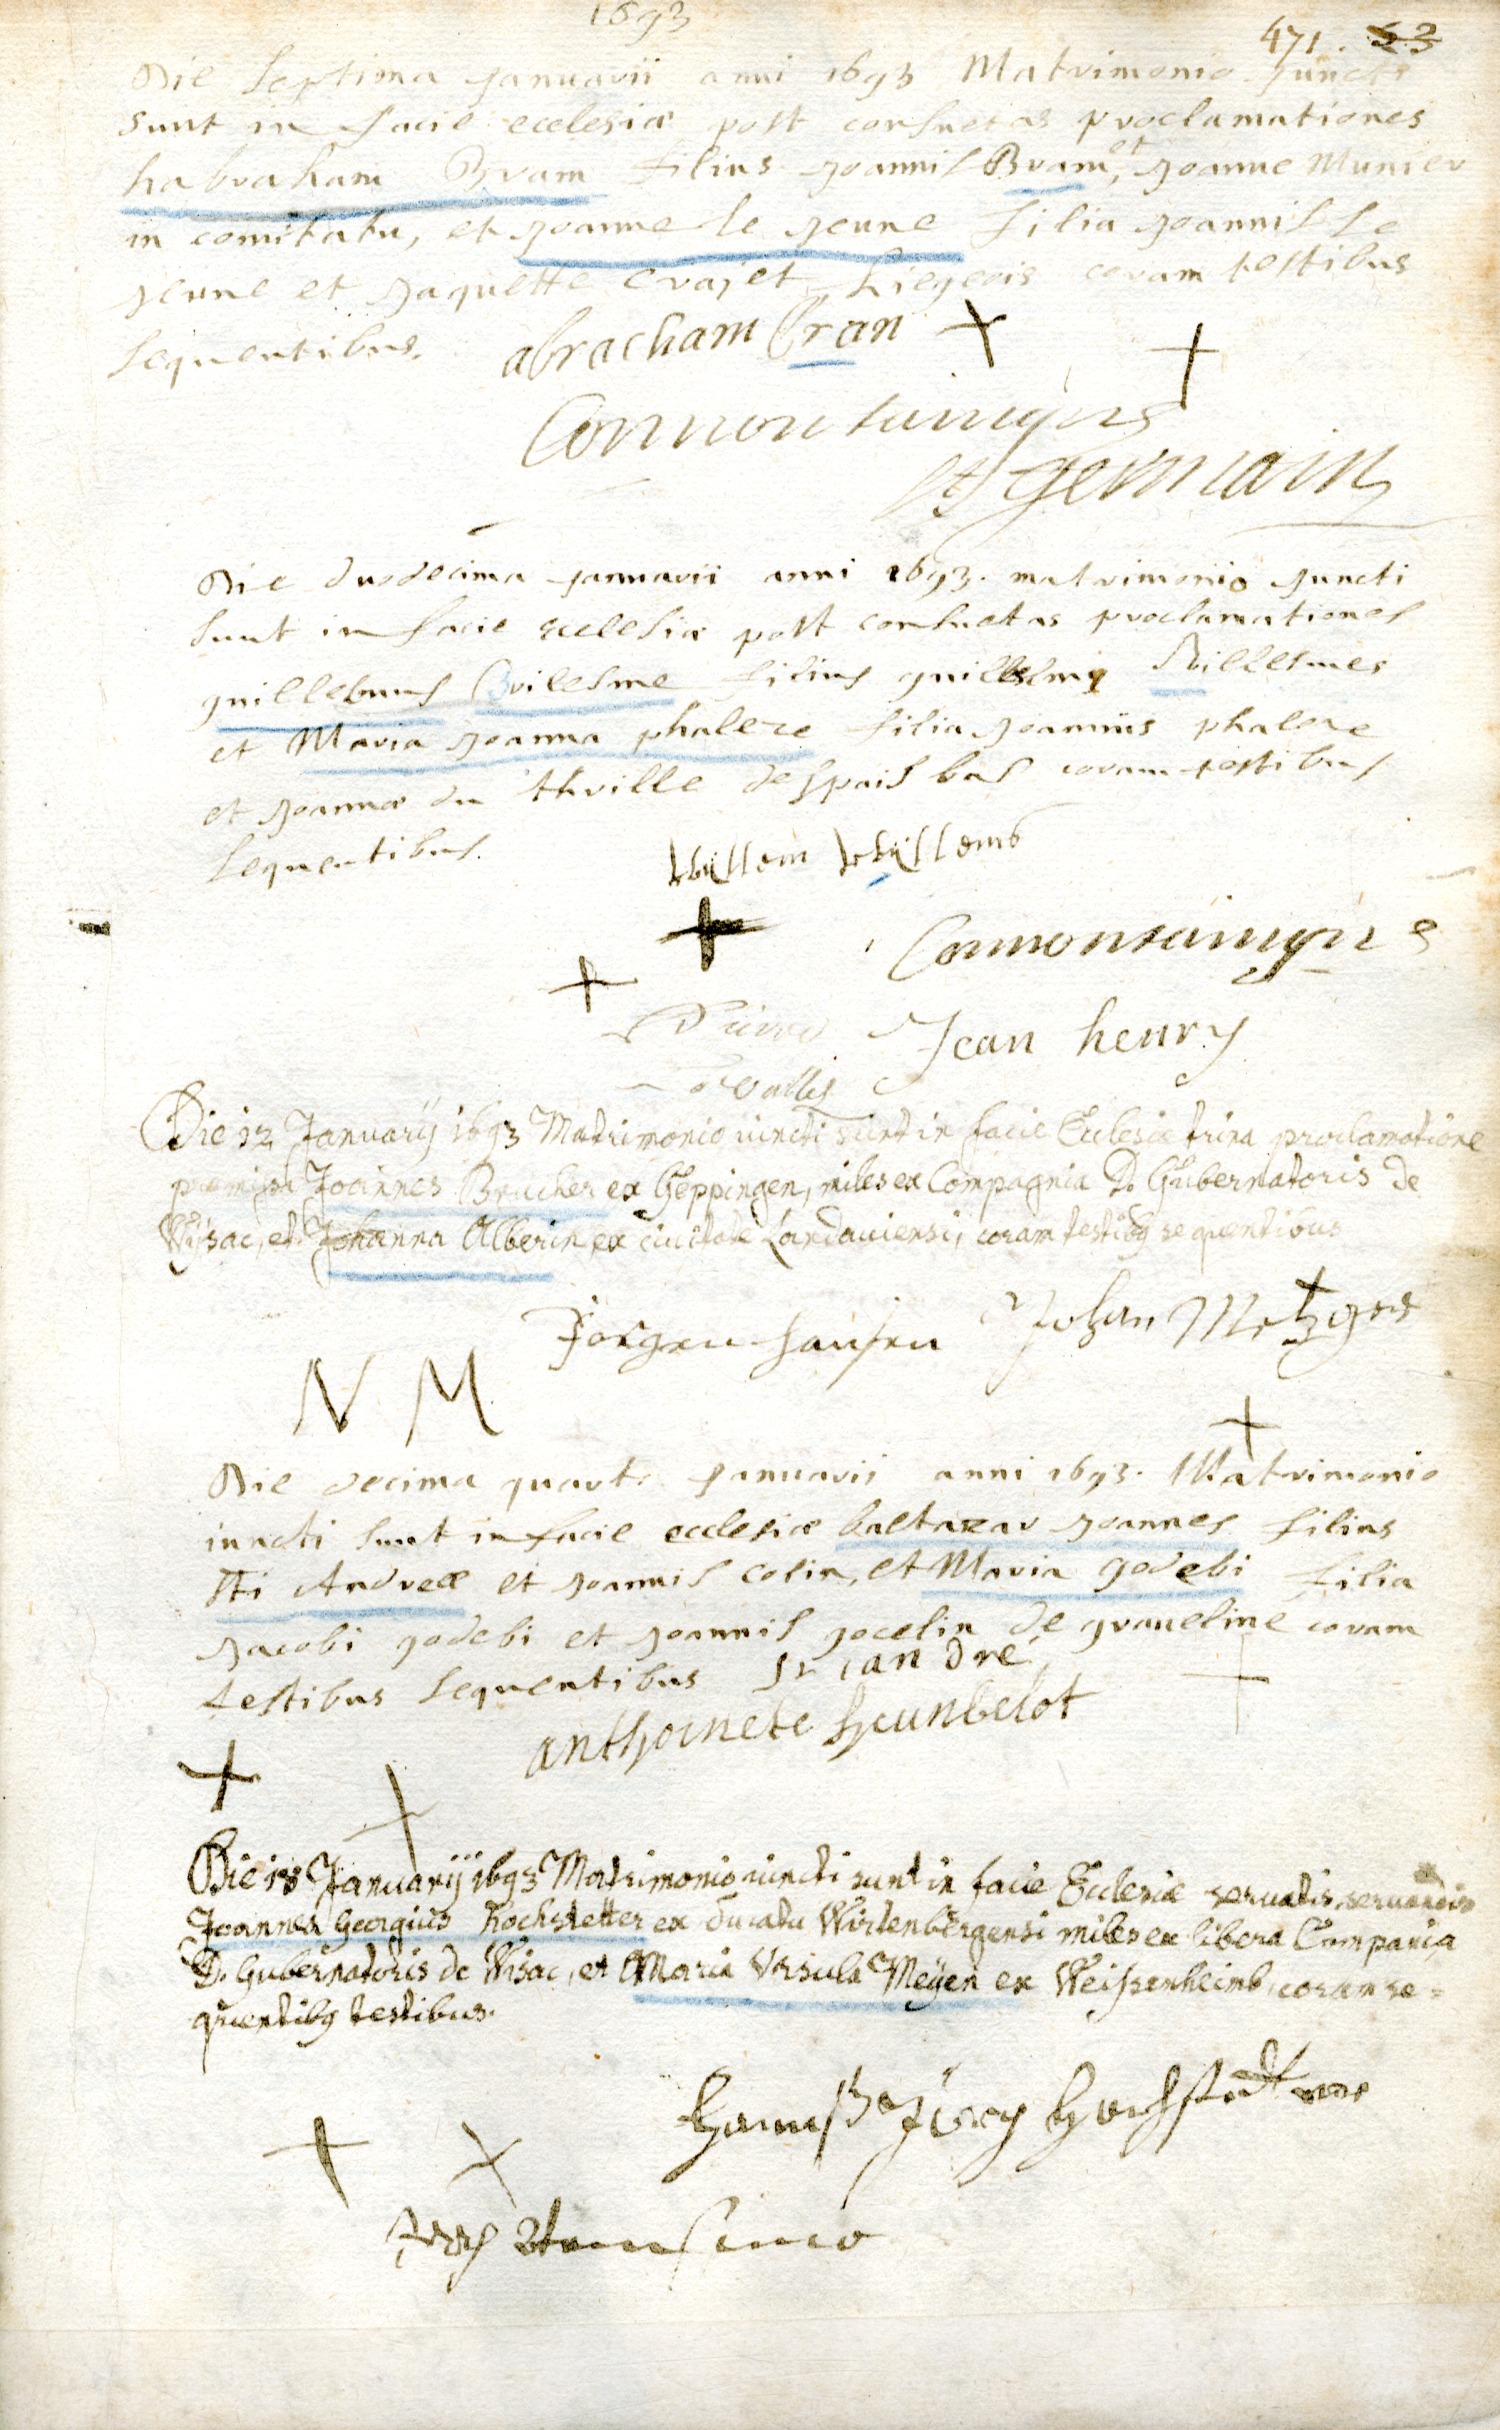 1693
471. 53
Die septima Januarii anni 1693 Matrimonio juncti
sunt in facie ecclesiæ post consuetas proclamationes
habraham Bram filius Joannis Bram, et Joanne Munier
in comitatu, et Joanne le Jeune filia Joannis le
Jeune et Jaquette Crajet Liegeois coram testibus
sequentibus.
abracham Bran
Connontaingne
St germain
Die duodecima Januarii anni 1693. matrimonio juncti
sunt in facie ecclesiæ post consuetas proclamationes
guillelmus filius
et Maria Joanna phalere filia Joannis phalere
et Joannæ du thville des pais bas coram testibus
sequentibus.
Willem Willems
Connontaingne
Jean henry
Die 12 Januarij 1693 Matrimonio iuncti sunt in facie Ecclesiæ trina proclamatione
premissa Joannes Brucher ex Geppingen, miles ex Compagnia D. Gubernatoris de
Wijsac, et Johanna Alberin ex ciuitate Landauiensi, coram testibg sequentibus
Johan Metzger
N M
Die decima quarta Januarii anni 1693. Matrimonio
iuncti sunt in facie ecclesiæ baltazar Joannes filius
Sti Andreæ et Joannis colin, et Maria godebi filia
Jacobi godebi et Joannis gocelin de graveline coram
testibus sequentibus
St andré
anthoinete heunbelot
Die 18 Januarij 1693 Matrimonio iuncti sunt in facie Ecclesiæ seruatis seruandis
Joannes Georgius Hochstetter ex ducatu Wirtenbergensi miles ex libera Compania
D. Gubernatoris de Wisac, et Maria Vrsula Meyen ex Weissenheimb, coram se=
quentibg testibus.
Hannß Jörg Hochstetter
Jerg